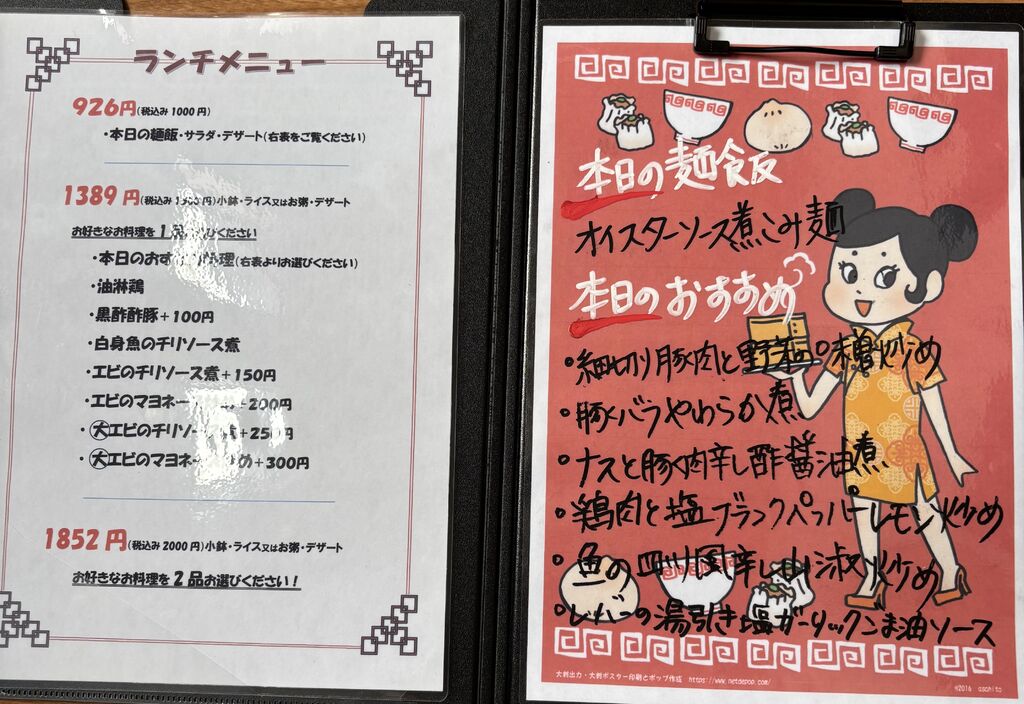 ランチメニュー
926円(税込み 1000 円)
・本日の麺飯・サラダ・デザート(右表をご覧ください)
1389 円(税込み 1500 円)小鉢・ライス又はお粥・デザート
お好きなお料理を1品お選びください
・本日のおすすめ料理(右表よりお選びください)
・油淋鶏
・黒酢酢豚+100円
・白身魚のチリソース煮
・エビのチリソース煮+150円
・エビのマヨネーズ +200円
・大エビのチリソース煮+250円
・大エビのマヨネーズ め+300円
1852 円(税込み 2000 円)小鉢・ライス又はお粥・デザート
お好きなお料理を2品お選びください!
本日の麺飯
オイスターソース煮こみ麺
本日のおすすめ
・細切り豚肉と野菜の味噌炒め
・豚バラやわらか煮
・ナスと豚肉辛し酢醤油煮
・鶏肉と塩ブラックペッパーレモン炒め
・魚の四川風辛し山淑炒め
・レバーの湯引き塩ガーリックごま油ソース
大判出力・大判ポスター印刷とポップ作成 https://www.netdepop.com/
©2016 asahito